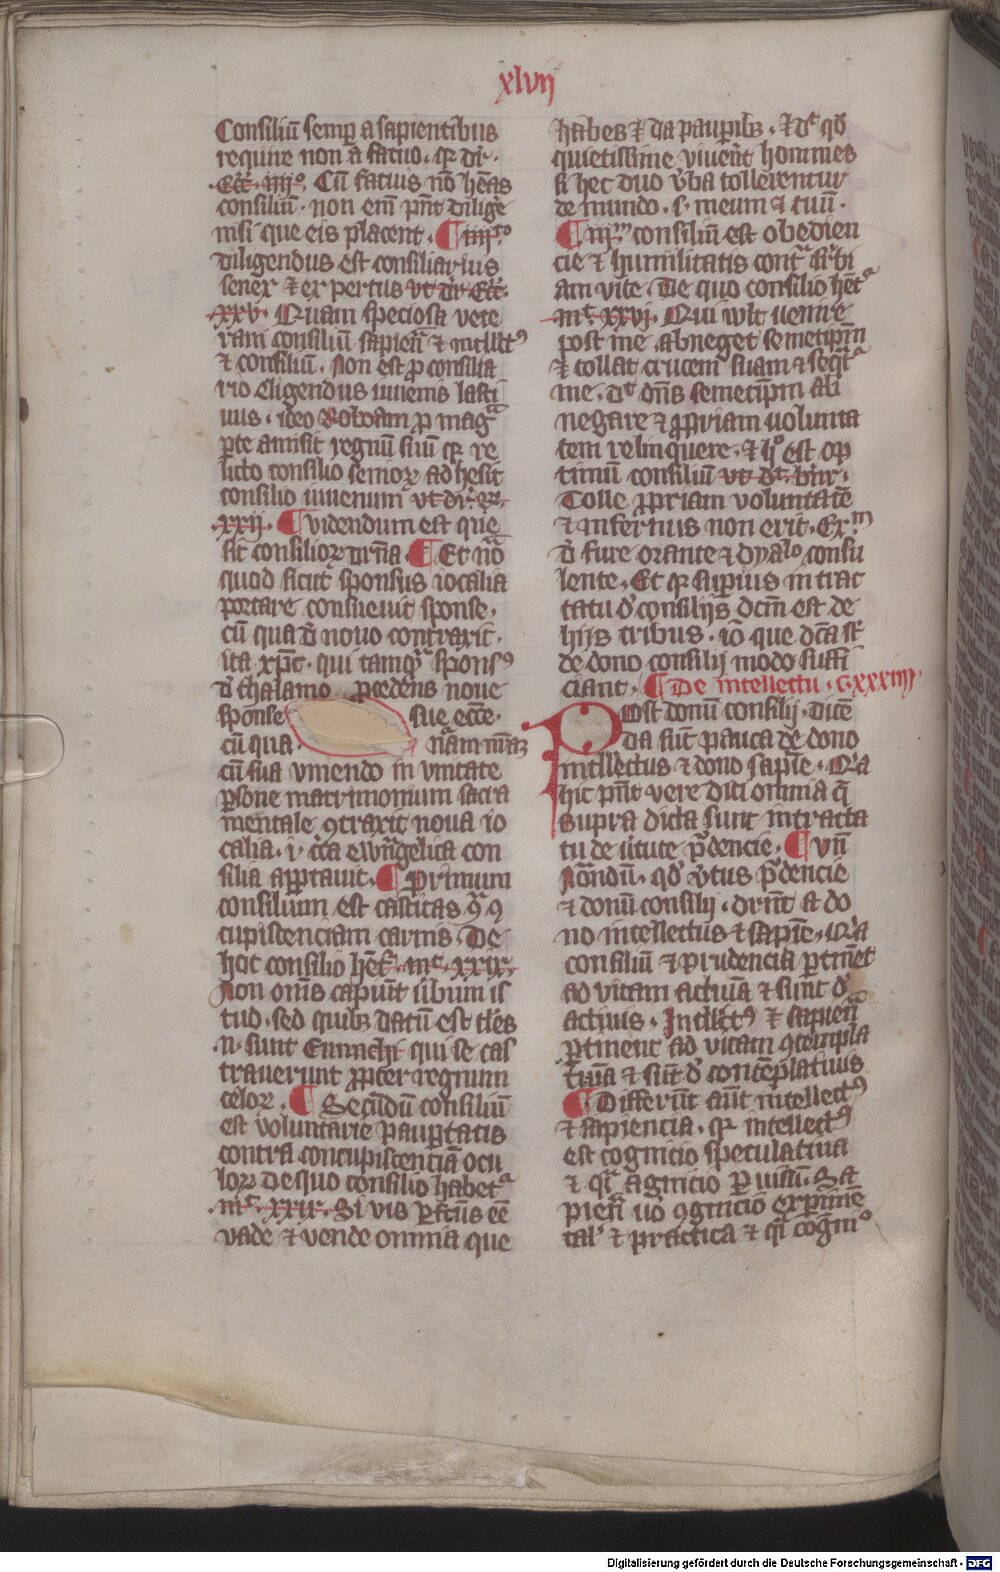 xlvij
Consiliū semp a sapientibus
require non a fatuo. qꝛ dr̄.
Ecc̄. iiijº. Cū fatuis nō hēas
consiliū. non em̄ pn̄t dilige
nisi que eis placent. ¶ iiijto
diligendus est consiliarius
senex ⁊ expertus vt dr̄ Ecc̄.
xxv. Quam speciosa vete
ram consiliū sapien̄ ⁊ intllctꝰ
⁊ consiliū. Non est ꝓ consilia
rio eligendus iuuenis lasci
uus. ideo Roboam ꝓ mag
ꝑte amisit regnū suū qꝛ re
licto consilio senioꝝ adhesit
consilio iuuenum vt dr̄.
xxij. ¶ videndum est que
sit consilioꝝ dr̄na. ¶ Et nō
quod sicut sponsus iocalia
portare consueuit sponse.
cū qua d̄ nouo contraxit.
ita xp̄c. qui tamqͣ sponsꝰ
d̄ thalamo ꝓcedens noue
sponse sue ecc̄e.
cū qua. nām nr̄az
cū sua vniendo in vnitate
ꝑsone matrimonium sacra
mentale ꝯtraxit noua io
calia. i. cc̄a ewāgelica con
silia apptauit. ¶ Primum
consilium est castitas ꝯͣ ꝯ
cupiscenciam carnis. De
hoc consilio hēt̄. mt̄. xxix.
Non om̄s capiunt ūbum is
tud. sed quibꝫ datū est tles
n. sunt Eunuchi qui se cas
trauerunt ꝓpter regnum
celoꝝ. ¶ Secūdū consiliū
est voluntarie pauꝑtatis
contra concupiscenciā ocu
loꝝ de quo consilio habetͣ
mt̄. xxix. Si vis ꝑfc̄us eē
vade ⁊ vende omnia que
habes ⁊ da pauꝑibꝫ. ⁊ dt̄ qd̄
quietissime viuerēt homines
si hec duo v̄ba tollerentur
de mundo. s. meum ⁊ tuū.
¶ iijm consiliū est obedien
cie ⁊ humilitatis contͣ ābi
am vite. De quo consilio hētͣ
mt̄ xxvj. Qui wlt uenire
post me abneget semetipm̄
⁊ tollat crucem suam ⁊ seqͣt
me. dt̄ dn̄s semetipm ab
negare ⁊ ꝓpriam uolunta
tem relinquere. ⁊ hº est op
timū consiliū vt dt̄ bn̄r.
Tolle ꝓpriam voluntatē
⁊ infernus non erit. Exm
d̄ fure orante ⁊ dyalo consu
lente. Et qꝛ supius in trac
tatu d̄ consilijs dcm̄ est de
hijs tribus. iō que dc̄a st̄
de dono consilij modo suffi
ciant. ¶ De intellectu. c.xxxiiij
Post donū consilij. dicē
da sūt pauca de dono
intllectus ⁊ dono sapīe. Qͣa
hic pn̄t vere dici omnia q̄
supra dicta sunt in tracta
tu de ūtute pͣdencie. ¶ vn̄
Nōandū. qd̄ v̄tus pͣdencie
⁊ donū consilij. drn̄t a do
no intellectus ⁊ sapīe. Qͣa
consiliū ⁊ prudencia ꝑtinēt
ad vitam actiuā ⁊ sunt d̄
actiuis. Intllctꝰ ⁊ sapien̄
ꝑtinent ad vitam ꝯtempla
tiuā ⁊ sūt d̄ contēplatiuis
¶ Differūt aūt intellectꝰ
⁊ sapiencia. qꝛ intellectꝰ
est cognicio speculatiua
⁊ qͣi agnicio ꝑ visū. Sa
pien̄ uō ꝯgnicio experimē
tal' ⁊ practica ⁊ qͣi cogniº
Digitalisierung gefördert durch die Deutsche Forschungsgemeinschaft - DFG